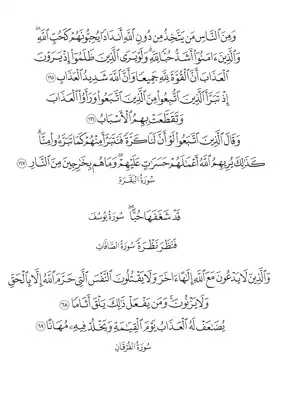 وَمِنَ ٱلنَّاسِ مَن يَتَّخِذُ مِن دُونِ ٱللَّهِ أَندَادًا يُحِبُّونَهُمْ كَحُبِّ ٱللَّهِ ۖ
وَٱلَّذِينَ ءَامَنُوٓا۟ أَشَدُّ حُبًّا لِّلَّهِ ۗ وَلَوْ يَرَى ٱلَّذِينَ ظَلَمُوٓا۟ إِذْ يَرَوْنَ
ٱلْعَذَابَ أَنَّ ٱلْقُوَّةَ لِلَّهِ جَمِيعًا وَأَنَّ ٱللَّهَ شَدِيدُ ٱلْعَذَابِ ١٦٥
إِذْ تَبَرَّأَ ٱلَّذِينَ ٱتُّبِعُوا۟ مِنَ ٱلَّذِينَ ٱتَّبَعُوا۟ وَرَأَوُا۟ ٱلْعَذَابَ
وَتَقَطَّعَتْ بِهِمُ ٱلْأَسْبَابُ ١٦٦
وَقَالَ ٱلَّذِينَ ٱتَّبَعُوا۟ لَوْ أَنَّ لَنَا كَرَّةً فَنَتَبَرَّأَ مِنْهُمْ كَمَا تَبَرَّءُوا۟ مِنَّا ۗ
كَذَٰلِكَ يُرِيهِمُ ٱللَّهُ أَعْمَٰلَهُمْ حَسَرَٰتٍ عَلَيْهِمْ ۖ وَمَا هُم بِخَٰرِجِينَ مِنَ ٱلنَّارِ ١٦٧
سُورَةُ البَقَرَةِ
قَدْ شَغَفَهَا حُبًّا ۖ سُورَةُ يُوسُفَ
فَنَظَرَ نَظْرَةً سُورَةُ الصَّافَّاتِ
وَٱلَّذِينَ لَا يَدْعُونَ مَعَ ٱللَّهِ إِلَٰهًا ءَاخَرَ وَلَا يَقْتُلُونَ ٱلنَّفْسَ ٱلَّتِى حَرَّمَ ٱللَّهُ إِلَّا بِٱلْحَقِّ
وَلَا يَزْنُونَ ۚ وَمَن يَفْعَلْ ذَٰلِكَ يَلْقَ أَثَامًا ٦٨
يُضَٰعَفْ لَهُ ٱلْعَذَابُ يَوْمَ ٱلْقِيَٰمَةِ وَيَخْلُدْ فِيهِۦ مُهَانًا ٦٩
سُورَةُ الفُرْقَانِ